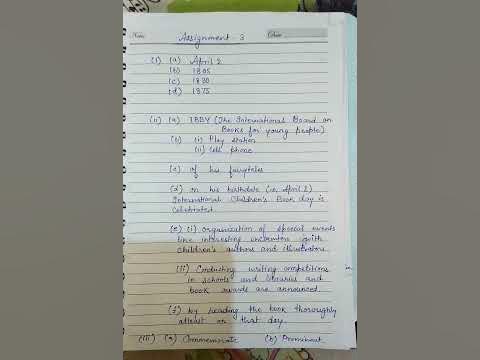 Name
Assignment - 3
Date
(I) (a) April 2
(b) 1805
(c) 1830
(d) 1875
(ii) (a) IBBY (The International Board on
Books for young people)
(b) (i) Play station
(ii) Cell phone
(c) of his fairytales
(d) on his birthdate (i.e. April 2)
International Children's Book day is
celebrated.
(e) (i) organization of special events
like interesting encounters with
children's authors and illustrators.
(ii) Conducting writing competitions
in schools and libraries and
book awards are announced.
(f) by reading the book thoroughly
atleast on that day.
(III) (a) Commemorate (b) Prominent